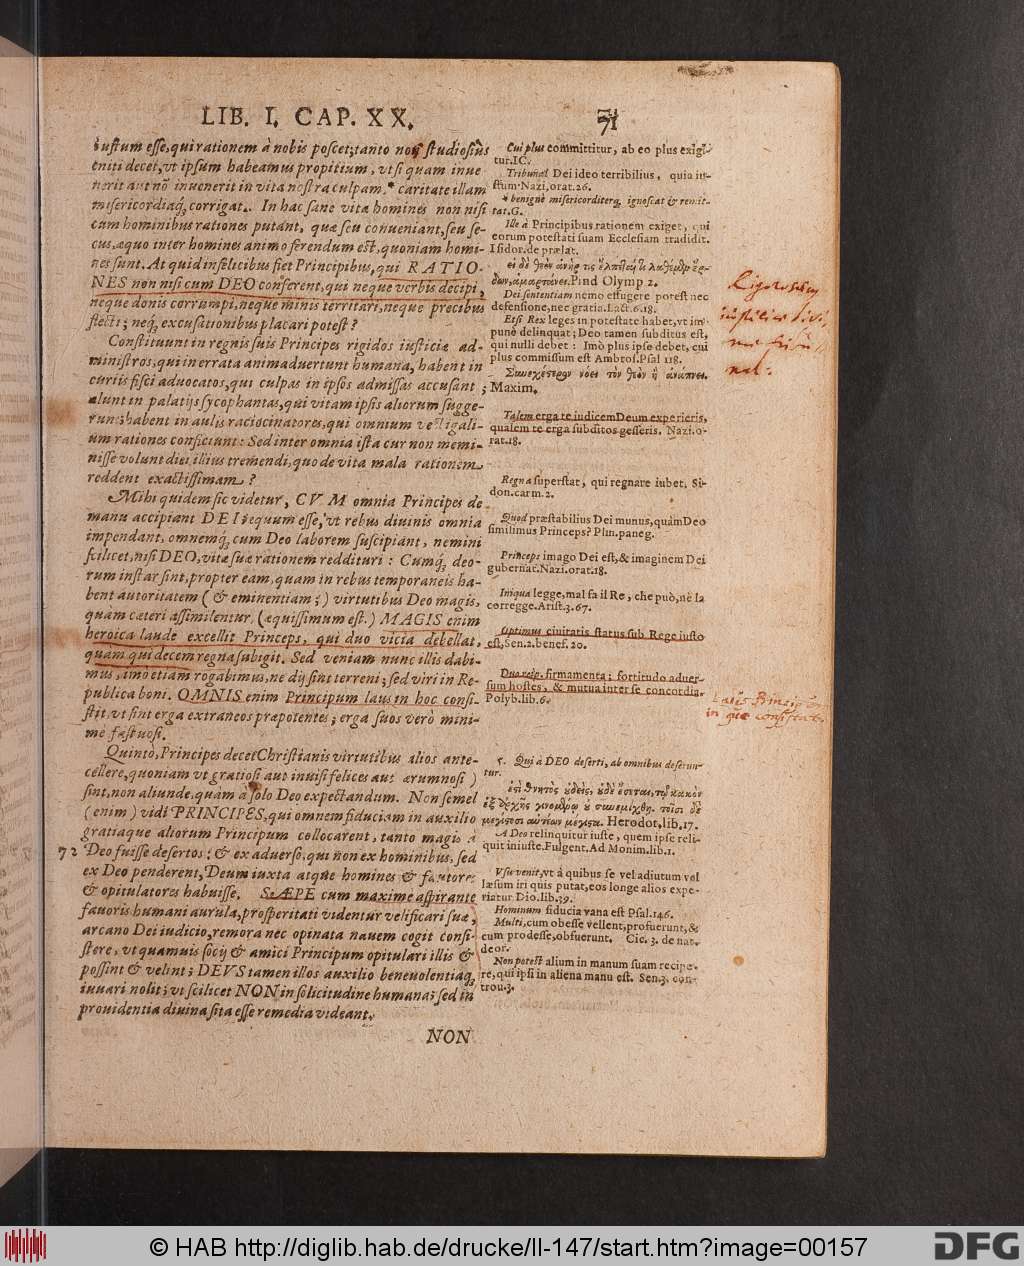 LIB. I. CAP. XX. 71
iustum esse, qui rationem à nobis poscet; tanto non studiosiùs
eniti decet, vt ipsum habeamus propitium, vt si quam inue
nerit aut nõ inuenerit in vita nostra culpam, * caritate illam
misericordiaq; corrigat. In hac sane vita homines non nisi
cum hominibus rationes putant, quæ seu conueniant, seu se-
cus, æquo inter homines animo ferendum est, quoniam homi-
nes sunt. At quid infelicibus fiet Principibus, qui RATIO-
NES non nisi cum DEO conferent, qui neque verbis decipi,
neque donis corrumpi, neque minis territari, neque precibus
flecti; neq; excusationibus placari potest?
Constituunt in regnis suis Principes rigidos iusticiæ ad-
ministros, qui in errata animaduertunt humana, habent in
curiis fisci aduocatos, qui culpas in ipsos admissas accusant;
alunt in palatijs sycophantas, qui vitam ipsis aliorum sugge-
runt; habent in aulis raciocinatores, qui omnium vectigali-
um rationes conficiunt: Sed inter omnia ista cur non memi-
nisse volunt diei, illius tremendi, quo de vita mala rationem
reddent exactissimam?
Mihi quidem sic videtur, CVM omnia Principes de
manu accipiant DEI: æquum esse, vt rebus diuinis omnia
impendant, omnemq; cum Deo laborem suscipiant, nemini
scilicet, nisi DEO, vitæ suæ rationem reddituri: Cumq; deo-
rum instar sint, propter eam, quam in rebus temporaneis ha-
bent autoritatem (& eminentiam;) virtutibus Deo magis,
quàm cæteri assimilentur, (æquissimum est.) MAGIS enim
heroica laude excellit Princeps, qui duo vicia debellat,
quam qui decem regna subigit. Sed veniam nunc illis dabi-
mus, imo etiam rogabimus, ne dij sint terreni; sed viri in Re-
publica boni. OMNIS enim Principum laus in hoc consi-
stit, vt sint erga extraneos præpotentes; erga suos verò mini-
me fastuosi.
Quintò, Principes decet Christianis virtutibus alios ante-
cellere, quoniam vt gratiosi aut inuisi felices aut ærumnosi)
sint, non aliunde, quàm à solo Deo expectandum. Non semel
(enim) vidi PRINCIPES, qui omnem fiduciam in auxilio
gratiaque aliorum Principum collocarent, tanto magis à
72 Deo fuisse desertos: & ex aduerso, qui non ex hominibus, sed
ex Deo penderent, Deum iuxta atque homines & fautores
& opitulatores habuisse. SÆPE cum maxime aspirante
fauoris humani aurula, prosperitati videntur velificari suæ,
arcano Dei iudicio, remora nec opinata nauem cogit consi-
stere, vt quamuis socij & amici Principum opitulari illis &
possint & velint; DEVS tamen illos auxilio beneuolentiaq;
iuuari nolit; vt scilicet NON in solicitudine humana; sed in
prouidentia diuina sita esse remedia videant.
NON
Cui plus committitur, ab eo plus exigi-
tur. IC.
Tribunal Dei ideo terribilius, quia iu-
stum. Nazi, orat. 26.
* benignè misericorditerq; ignoscat & remit-
tat. G.
Ille à Principibus rationem exiget, qui
eorum potestati suam Ecclesiam tradidit.
Isidor. de prælat.
Pind Olymp 2.
Dei sententiam nemo effugere potest nec
defensione, nec gratia. Lact. 6.18.
Etsi Rex leges in potestate habet, vt im-
punè delinquat; Deo tamen subditus est,
qui nulli debet: Imò plus ipse debet, cui
plus commissum est Ambros. Psal 118.
Maxim.
Talem erga te iudicem Deum experieris,
qualem te erga subditos gesseris. Nazi. o-
rat. 18.
Regna superstat, qui regnare iubet. Si-
don. carm. 2.
Quod præstabilius Dei munus, quàm Deo
simillimus Princeps? Plin. paneg.
Princeps imago Dei est, & imaginem Dei
gubernat. Nazi. orat. 18.
Iniqua legge, mal fa il Re, che può, nè la
corregge. Arist. 3. 67.
Optimus ciuitatis status sub Rege iusto
est, Sen. 2. benef. 20.
Duo reip. firmamenta; fortitudo aduer-
sum hostes, & mutua inter se concordia.
Polyb. lib. 6.
5. Qui à DEO deserti, ab omnibus deserun-
tur.
Herodot, lib. 17.
A Deo relinquitur iuste, quem ipse reli-
quit iniuste. Fulgent. Ad Monim. lib. 1.
Vsu venit, vt à quibus se vel adiutum vel
læsum iri quis putat, eos longe alios expe-
riatur Dio. lib. 39.
Hominum fiducia vana est Psal. 146.
Multi, cum obesse vellent, profuerunt, &
cum prodesse, obfuerunt. Cic. 3. de nat.
deor.
Non potest alium in manum suam recipe-
re, qui ipsi in aliena manu est. Sen. 3. con-
trou. 3.
© HAB http://diglib.hab.de/drucke/li-147/start.htm?image=00157
DFG